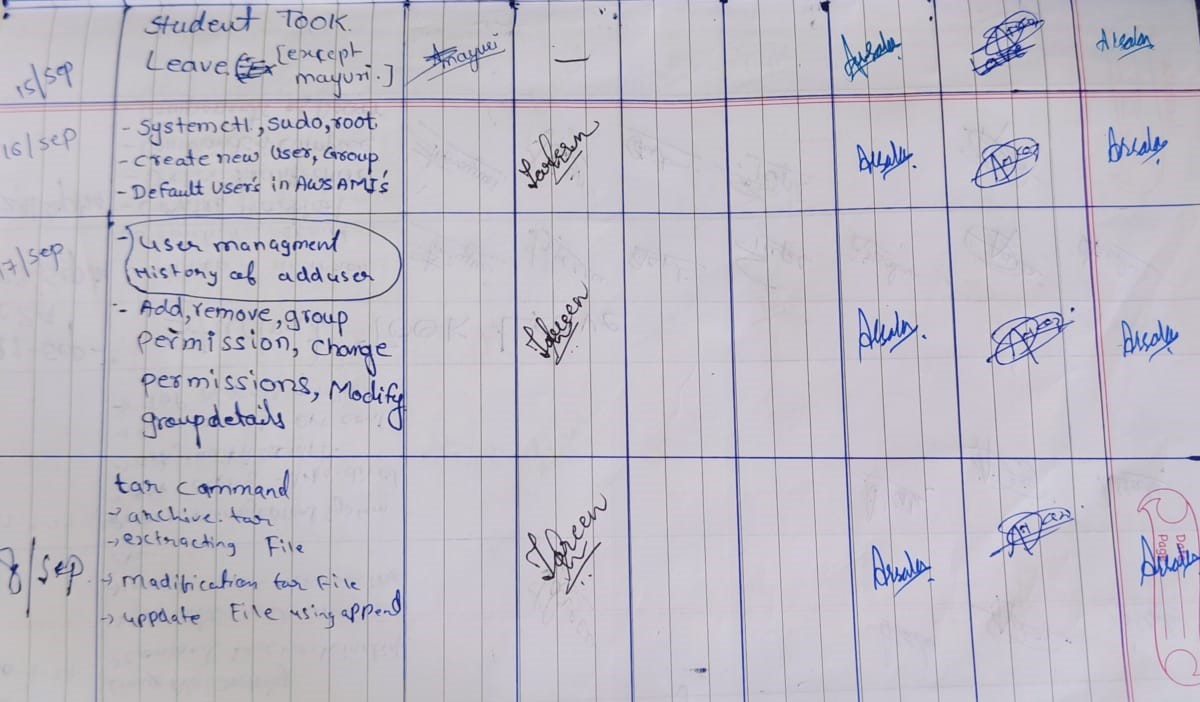 15/sep
Student TOOK
Leave [except
mayuri.]
mayuri
—
Arsalan
Arsalan
16/sep
- Systemctl, sudo, root
- Create new User, Group
- Default User's in AWS AMI's
Arsalan
Arsalan
17/sep
- User managment
History of adduser
- Add, remove, group
Permission, Change
permissions, Modify
group details
Tahreen
Arsalan
Arsalan
8/sep
tar command
→ archive.tar
→ extracting File
→ madification tar File
→ uppdate File using append
Tahreen
Arsalan
Date
Page